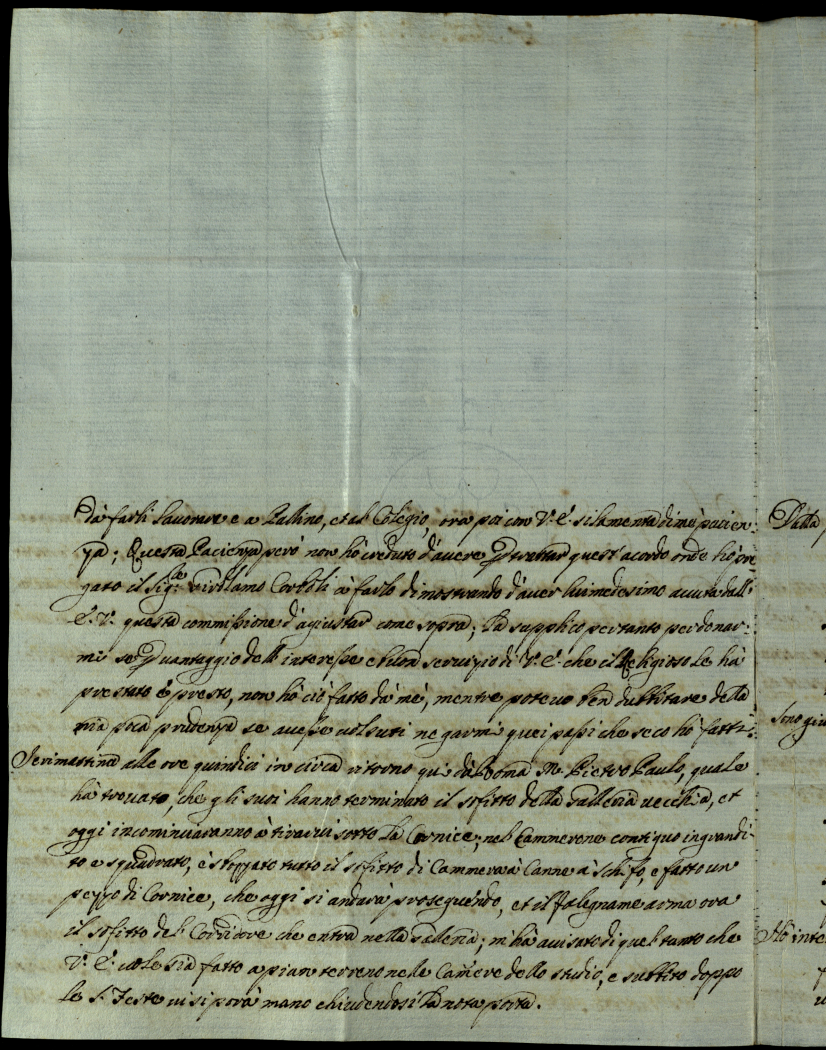 dà farli lavorare e a Pallino, et al Colegio, ora poi con V. E. si lamenta di mia pacien:
za; Questa Pacienza però non hò creduto d'avere quest acordo onde hò pre
gato il Sig.re Girolamo Corboli à farlo dimostrando d'aver lui medesimo avuta dall'
E. V. questa commissione d'agiustar come sopra; La supplico per tanto perdonar:
mi se per vantaggio dell'interesse e buon servizio di V. E. che il Religioso le hà
prestato è presto, non hò ciò fatto dà mè, mentre potevo ben dubbitare della
mia poca prudenza se avesse volsuti negarmi quei passi che seco hò fatti:
Jerimattina alle ore quindici in circa ritornò qui dà Roma M.e Pietro Paulo, quale
hà trovato, che gli suoi hanno terminato il sofitto della Galleria vecchia, et
oggi incominciaranno à tirarvi sotto la Cornice; nel Cammerone contiguo ingrandi-
to e squadrato, è stoppato tutto il sofitto di Cammera à Canne à Schifo, e fatto un
pezzo di Cornice, che oggi si andarà proseguendo, et il falegname arma ora
il sofitto del Corridore che entra nella Galleria; m'hà avisato di quel tanto che
V. E. vole sia fatto a pian terreno nelle Camere dello studio, e subbito doppo
le S. Feste vi si porà mano chiudendosi la nota porta.
Della
Sono giu
Hò inte